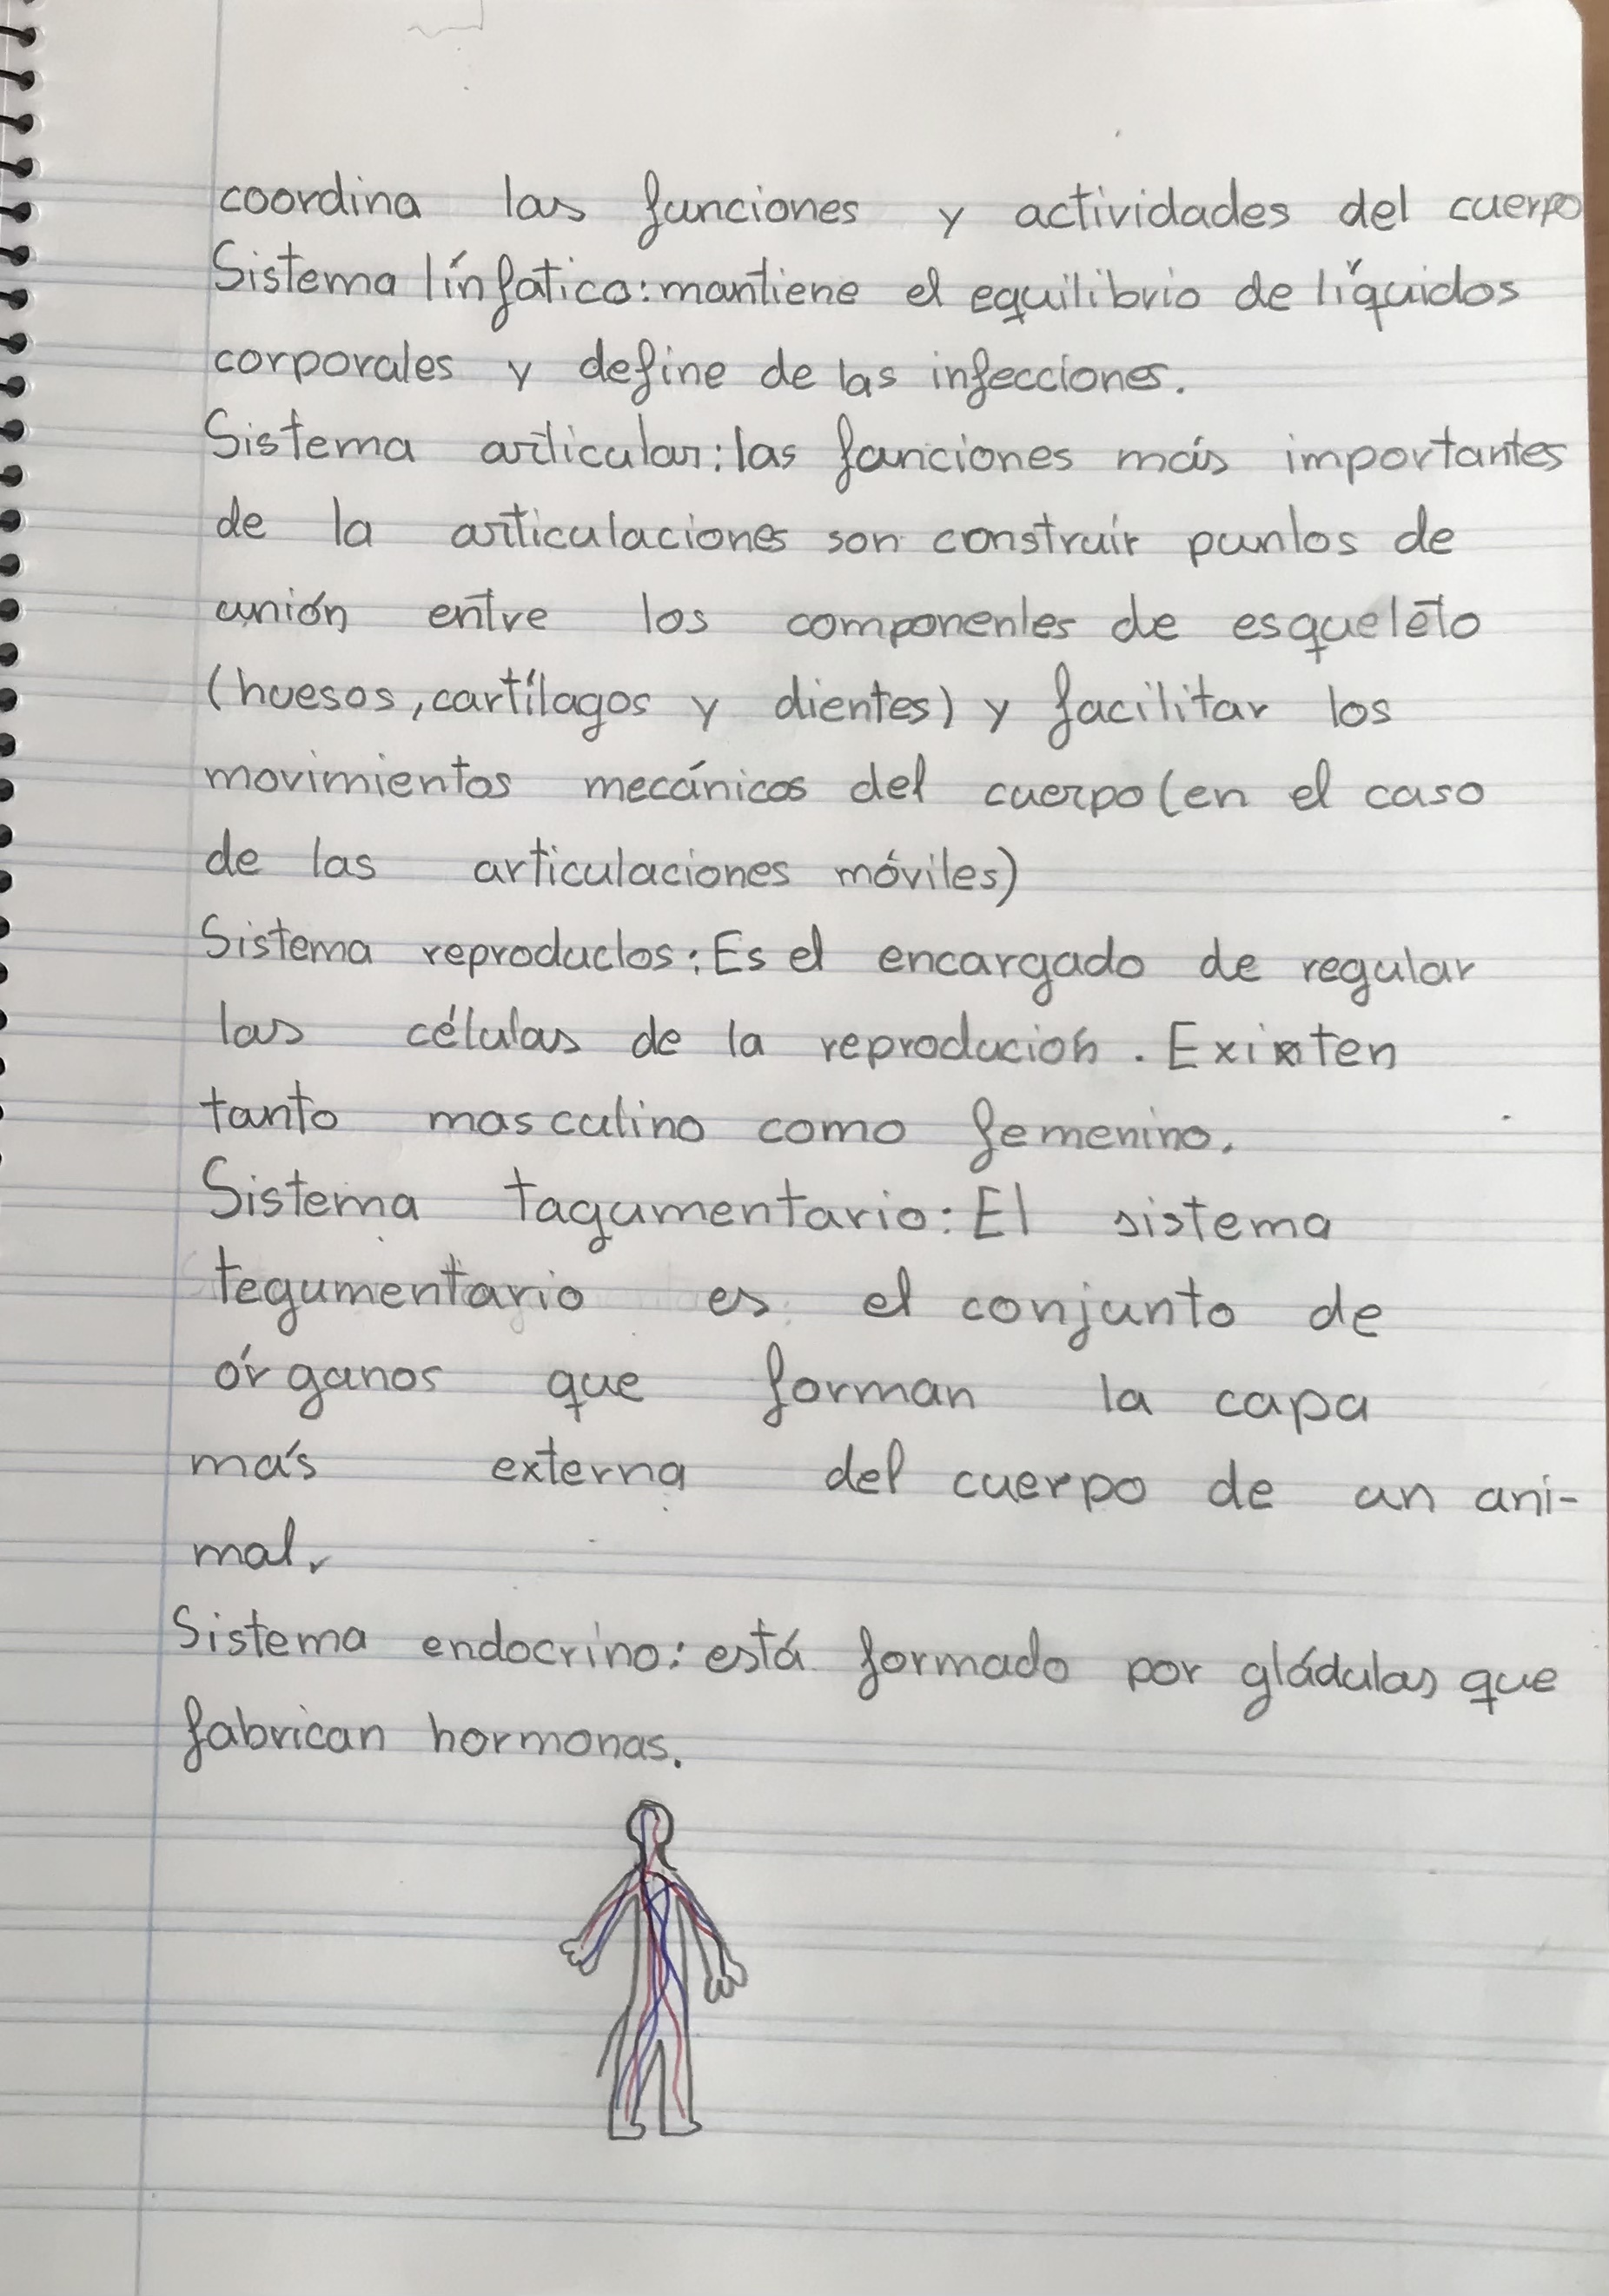 coordina las funciones y actividades del cuerpo
Sistema línfatico: mantiene el equilibrio de líquidos
corporales y define de las infecciones.
Sistema articular: las funciones más importantes
de la articulaciones son construir puntos de
unión entre los componentes de esqueleto
(huesos, cartílagos y dientes) y facilitar los
movimientos mecánicos del cuerpo (en el caso
de las articulaciones móviles)
Sistema reproductos: Es el encargado de regular
las células de la reproducion. Existen
tanto masculino como femenino.
Sistema tagumentario: El sistema
tegumentario es el conjunto de
órganos que forman la capa
más externa del cuerpo de un ani-
mal.
Sistema endocrino: está formado por gládulas que
fabrican hormonas.